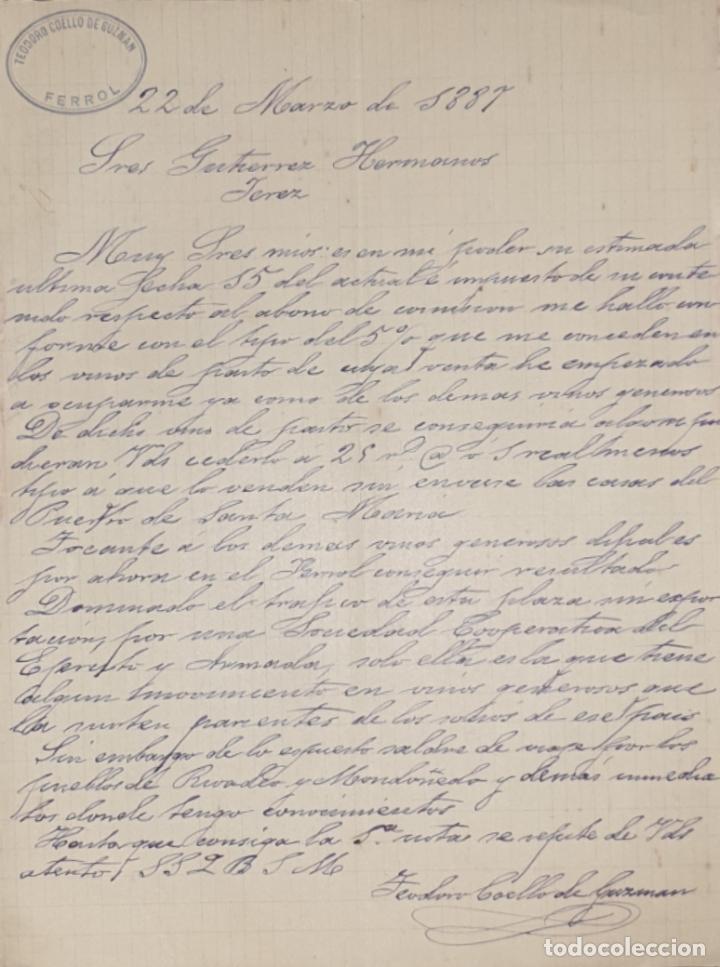 TEODORO COELLO DE GUZMAN
FERROL
22 de Marzo de 1887
Sres Gutierrez Hermanos
Jerez
Muy Sres mios: es en mi poder su estimada
ultima fecha 15 del actual é impuesto de su conte
nido respecto al abono de comision me hallo con
forme con el tipo del 5% que me conceden en
los vinos de pasto de cuya venta he empezado
a ocuparme ya como de los demas vinos generosos
De dicho vino de pasto se conseguiria algo si pu
dieran Vds cederlo a 25 rs @ o 1 real menos
tipo á que lo venden sin envase las casas del
Puerto de Santa Maria
Tocante á los demas vinos generosos dificil es
por ahora en el Ferrol conseguir resultado
Dominado el trafico de esta plaza sin expor
tación, por una Sociedad Cooperativa del
Ejercito y Armada, solo ella es la que tiene
algun movimiento en vinos generosos que
la surten parientes de los socios de ese pais
Sin embargo de lo espuesto saldre de viaje por los
pueblos de Rivadeo y Mondoñedo y demás inmedia
tos donde tengo conocimientos
Hasta que consiga la 1ª nota se repite de Vds
atento SSQBSM
Teodoro Coello de Guzman
todocoleccion.net